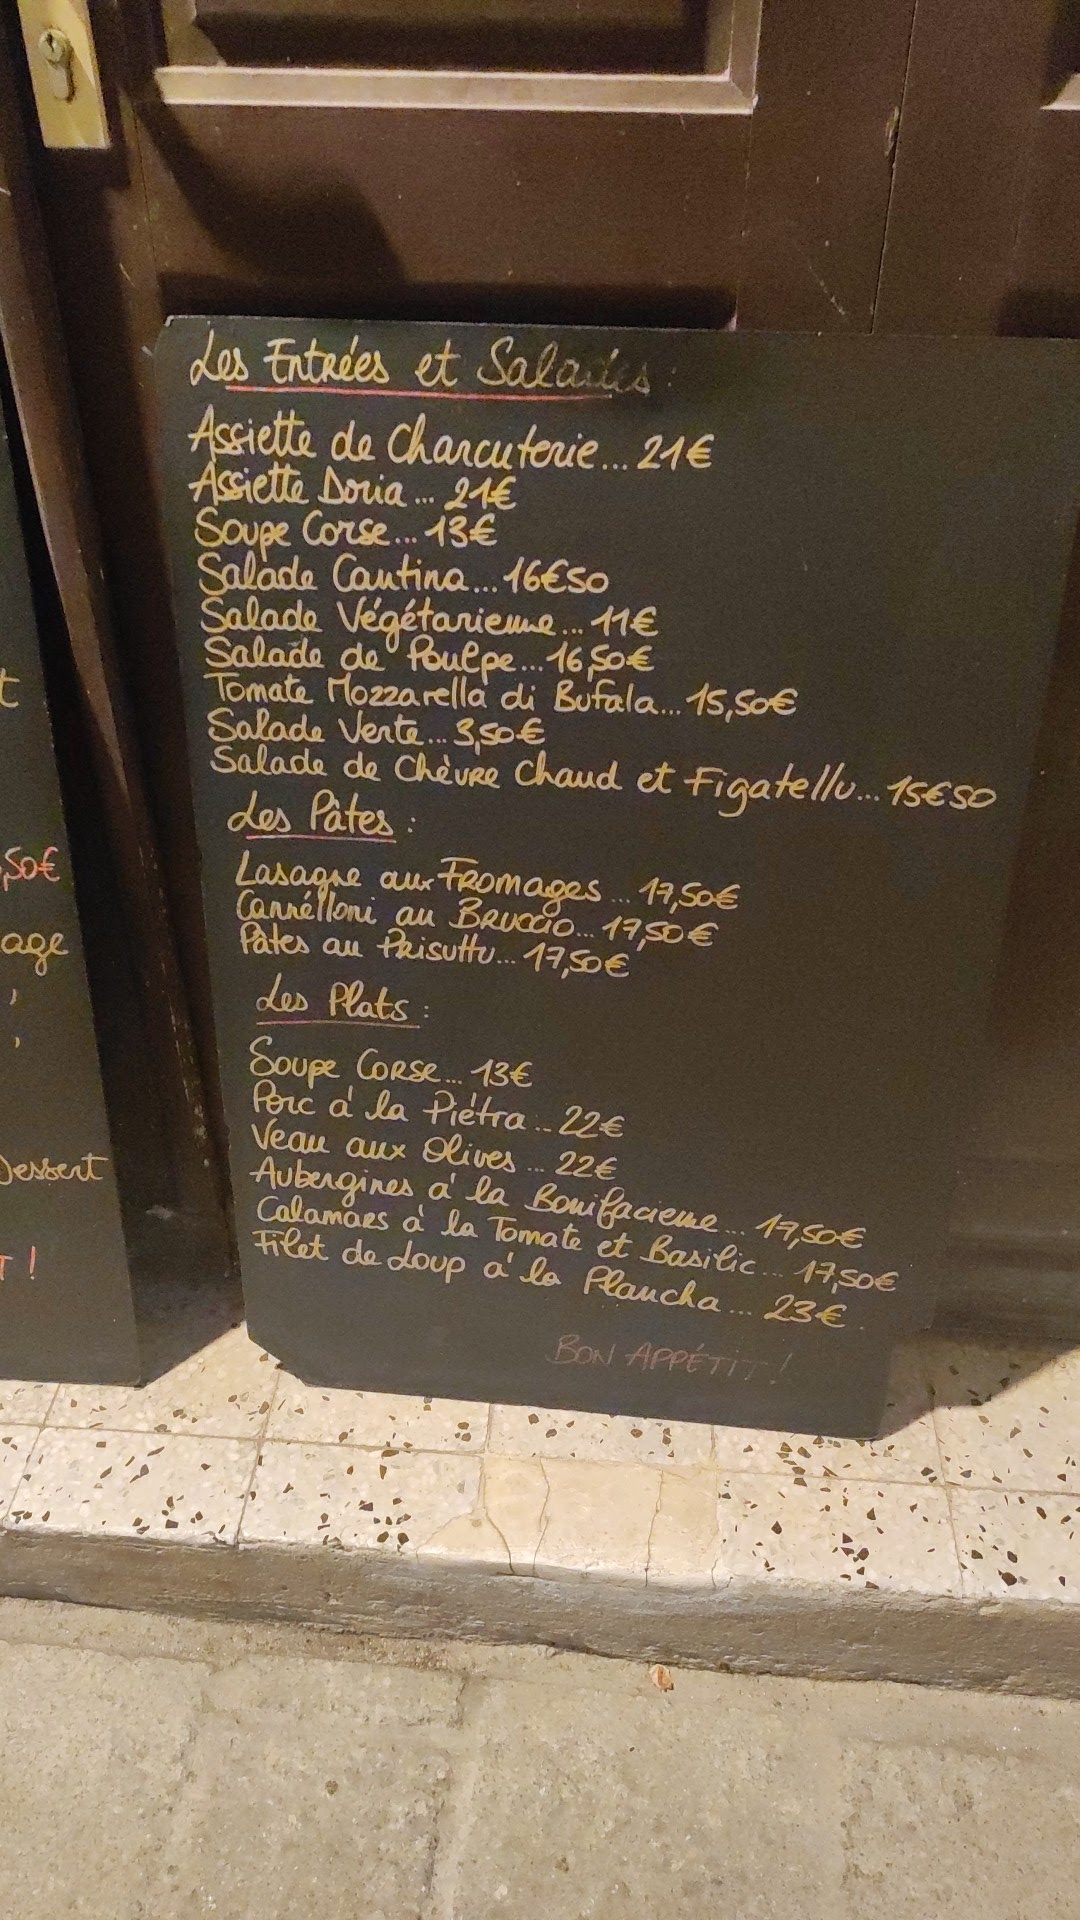 Les Entrées et Salades :
Assiette de Charcuterie... 21€
Assiette Doria... 21€
Soupe Corse... 13€
Salade Cantina... 16€50
Salade Végétarienne... 11€
Salade de Poulpe... 16,50€
Tomate Mozzarella di Bufala... 15,50€
Salade Verte... 3,50€
Salade de Chèvre Chaud et Figatellu... 15€50
Les Pâtes :
Lasagne aux Fromages... 17,50€
Cannélloni au Bruccio... 17,50€
Pâtes au Prisuttu... 17,50€
Les Plats :
Soupe Corse... 13€
Porc à la Piétra... 22€
Veau aux Olives... 22€
Aubergines à la Bonifacienne... 17,50€
Calamars à la Tomate et Basilic... 17,50€
Filet de Loup à la Plancha... 23€
BON APPÉTIT !
t
,50€
age
,
,
Dessert
T !